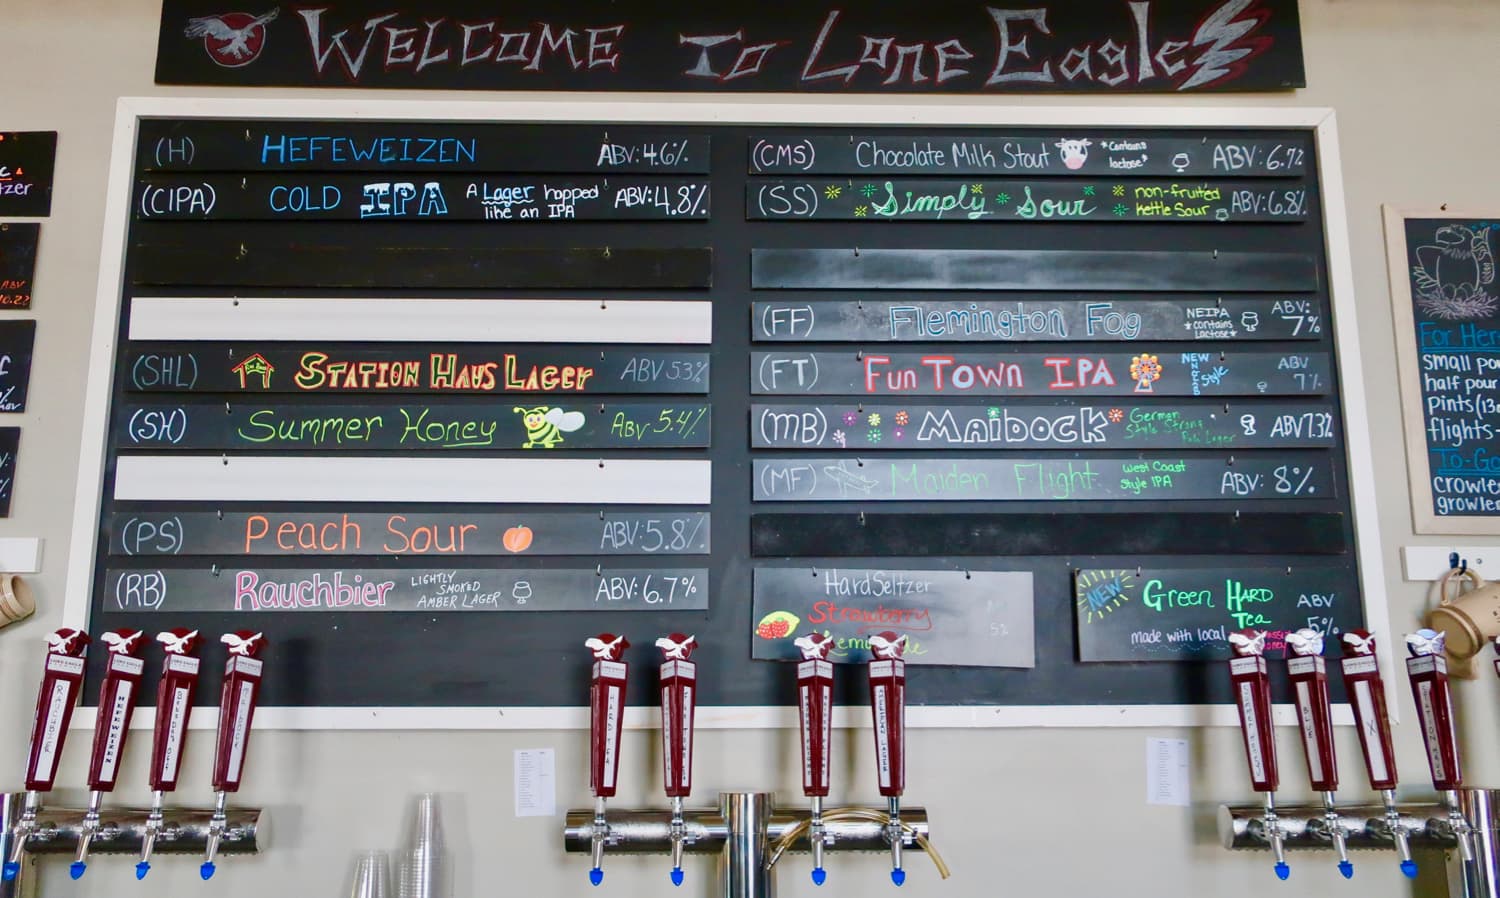 WELCOME TO Lone Eagle
(H) HEFEWEIZEN ABV:4.6%
(CIPA) COLD IPA A Lager hopped like an IPA ABV:4.8%
(SHL) STATION HAUS LAGER ABV 5.3%
(SH) Summer Honey ABV 5.4%
(PS) Peach Sour ABV:5.8%
(RB) Rauchbier LIGHTLY SMOKED AMBER LAGER ABV:6.7%
(CMS) Chocolate Milk Stout *Contains lactose* ABV:6.7%
(SS) Simply Sour non-fruited Kettle Sour ABV:6.8%
(FF) Flemington Fog NEIPA *contains Lactose* ABV: 7%
(FT) Fun Town IPA NEW ENGLAND Style ABV 7%
(MB) Maibock German Style Strong Pale Lager ABV 7.3%
(MF) Maiden Flight West Coast Style IPA ABV: 8%
Hard Seltzer
Strawberry
5%
NEW
Green HARD Tea
ABV 5%
made with local
For Her
Small po
half pour
Pints(13
flights-
To-Go
crowle
growle
tzer
ABV
10.2%
HEFEWEIZEN
HARD TEA